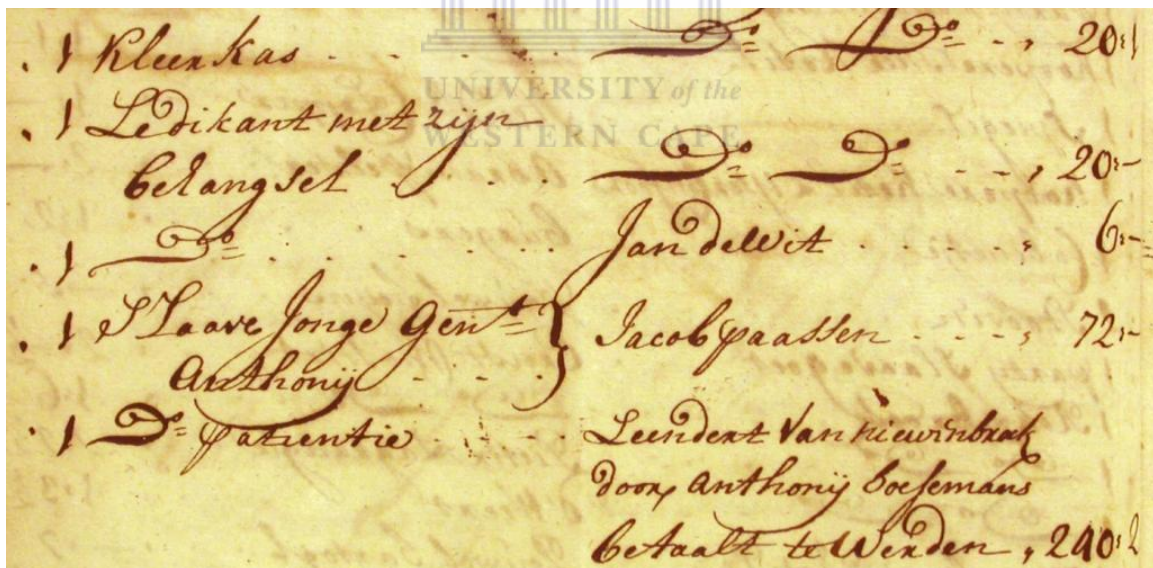 1 Kleen kas - - - Do Do - - , 20:1
UNIVERSITY of the
WESTERN CAPE
1 Ledikant met zijn
behangsel - - - Do Do - - , 20:-
1 Do - - - Jan de Wit - - - , 6:-
1 Slaave Jonge Gent }
Anthonij - - - } Jacob paassen - - - , 72:-
1 Do patientie - - - Leendert Van niewenbroek
door, Anthonij boesemans
betaalt te Werden , 240:2